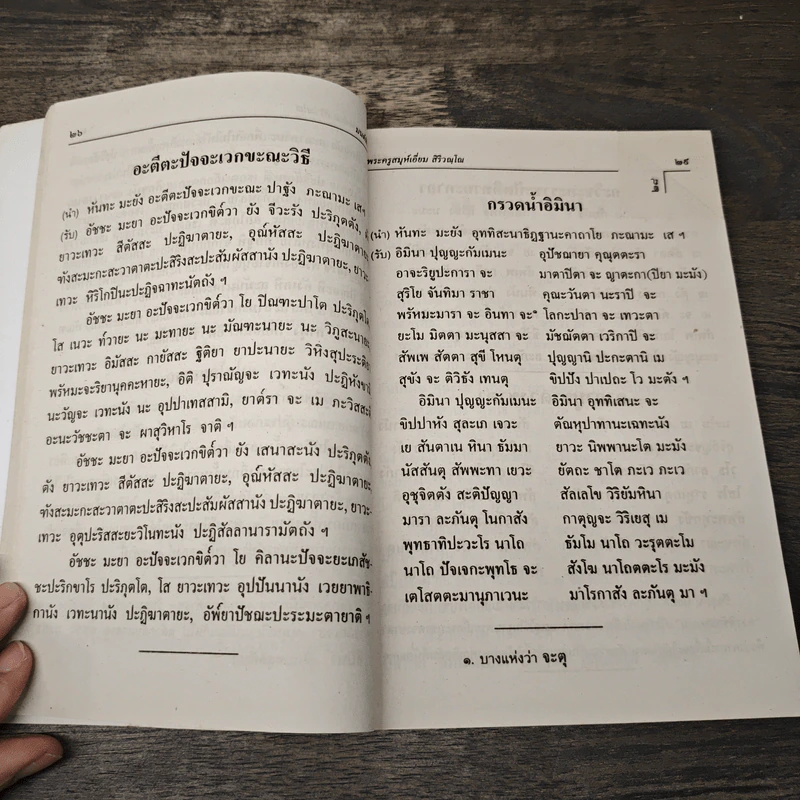 ๒๖
อะตีตะปัจจะเวกขะณะวิธี
(นำ) หันทะ มะยัง อะตีตะปัจจะเวกขะณะ ปาฐัง ภะณามะ เส ฯ
(รับ) อัชชะ มะยา อะปัจจะเวกขิต๎วา ยัง จีวะรัง ปะริภุตตัง,
ยาวะเทวะ สีตัสสะ ปะฏิฆาตายะ, อุณ๎หัสสะ ปะฏิฆาตายะ,
ฑังสะมะกะสะวาตาตะปะสิริงสะปะสัมผัสสานัง ปะฏิฆาตายะ, ยาวะ-
เทวะ หิริโกปินะปะฏิจฉาทะนัตถัง ฯ
อัชชะ มะยา อะปัจจะเวกขิต๎วา โย ปิณฑะปาโต ปะริภุตโต
โส เนวะ ท๎วายะ นะ มะทายะ นะ มัณฑะนายะ นะ วิภูสะนายะ
ยาวะเทวะ อิมัสสะ กายัสสะ ฐิติยา ยาปะนายะ วิหิงสุปะระติยา
พรัหมะจะริยานุคคะหายะ, อิติ ปุราณัญจะ เวทะนัง ปะฏิหังขามิ
นะวัญจะ เวทะนัง นะ อุปปาเทสสามิ, ยาต๎รา จะ เม ภะวิสสะติ
อะนะวัชชะตา จะ ผาสุวิหาโร จาติ ฯ
อัชชะ มะยา อะปัจจะเวกขิต๎วา ยัง เสนาสะนัง ปะริภุตตัง
ตัง ยาวะเทวะ สีตัสสะ ปะฏิฆาตายะ, อุณ๎หัสสะ ปะฏิฆาตายะ,
ฑังสะมะกะสะวาตาตะปะสิริงสะปะสัมผัสสานัง ปะฏิฆาตายะ, ยาวะ-
เทวะ อุตุปะริสสะยะวิโนทะนัง ปะฏิสัลลานารามัตถัง ฯ
อัชชะ มะยา อะปัจจะเวกขิต๎วา โย คิลานะปัจจะยะเภสัช-
ชะปะริกขาโร ปะริภุตโต, โส ยาวะเทวะ อุปปันนานัง เวยยาพาธิ-
กานัง เวทะนานัง ปะฏิฆาตายะ, อัพ๎ยาปัชฌะปะระมะตายาติ ฯ
พระครูสมุห์เอี่ยม สิริวณฺโณ ๒๙
กรวดน้ำอิมินา
(นำ) หันทะ มะยัง อุททิสะนาธิฏฐานะคาถาโย ภะณามะ เส ฯ
(รับ) อิมินา ปุญญะกัมเมนะ อุปัชฌายา คุณุตตะรา
อาจะริยูปะการา จะ มาตาปิตา จะ ญาตะกา(ปิยา มะมัง)
สุริโย จันทิมา ราชา คุณะวันตา นะราปิ จะ
พรัหมะมารา จะ อินทา จะ๑ โลกะปาลา จะ เทวะตา
ยะโม มิตตา มะนุสสา จะ มัชฌัตตา เวริกาปิ จะ
สัพเพ สัตตา สุขี โหนตุ ปุญญานิ ปะกะตานิ เม
สุขัง จะ ติวิธัง เทนตุ ขิปปัง ปาเปถะ โว มะตัง ฯ
อิมินา ปุญญะกัมเมนะ อิมินา อุททิเสนะ จะ
ขิปปาหัง สุละเภ เจวะ ตัณหุปาทานะเฉทะนัง
เย สันตาเน หินา ธัมมา ยาวะ นิพพานะโต มะมัง
นัสสันตุ สัพพะทา เยวะ ยัตถะ ชาโต ภะเว ภะเว
อุชุจิตตัง สะติปัญญา สัลเลโข วิริยัมหินา
มารา ละภันตุ โนกาสัง กาตุญจะ วิริเยสุ เม
พุทธาทิปะวะโร นาโถ ธัมโม นาโถ วะรุตตะโม
นาโถ ปัจเจกะพุทโธ จะ สังโฆ นาโถตตะโร มะมัง
เตโสตตะมานุภาเวนะ มาโรกาสัง ละภันตุ มา ฯ
๑. บางแห่งว่า จะตุ